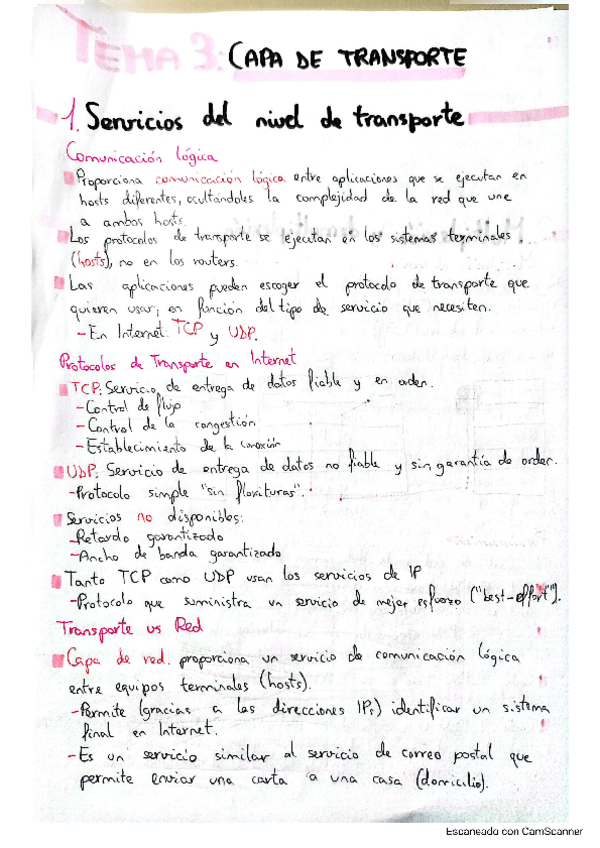 TEMA 3: CAPA DE TRANSPORTE
1. Servicios del nivel de transporte
Comunicación lógica
Proporciona comunicación lógica entre aplicaciones que se ejecutan en
hosts diferentes, ocultándoles la complejidad de la red que une
a ambos hosts.
Los protocolos de transporte se ejecutan en los sistemas terminales
(hosts), no en los routers.
Las aplicaciones pueden escoger el protocolo de transporte que
quieren usar, en función del tipo de servicio que necesiten.
- En Internet: TCP y UDP.
Protocolos de Transporte en Internet
TCP: Servicio de entrega de datos fiable y en orden.
- Control de flujo
- Control de la congestión
- Establecimiento de la conexión
UDP: Servicio de entrega de datos no fiable y sin garantía de orden.
- Protocolo simple "sin florituras".
Servicios no disponibles:
- Retardo garantizado
- Ancho de banda garantizado
Tanto TCP como UDP usan los servicios de IP
- Protocolo que suministra un servicio de mejor esfuerzo ("best-effort").
Transporte vs Red
Capa de red: proporciona un servicio de comunicación lógica
entre equipos terminales (hosts).
- Permite (gracias a las direcciones IPs) identificar un sistema
final en Internet.
- Es un servicio similar al servicio de correo postal que
permite enviar una carta a una casa (domicilio).
Escaneado con CamScanner